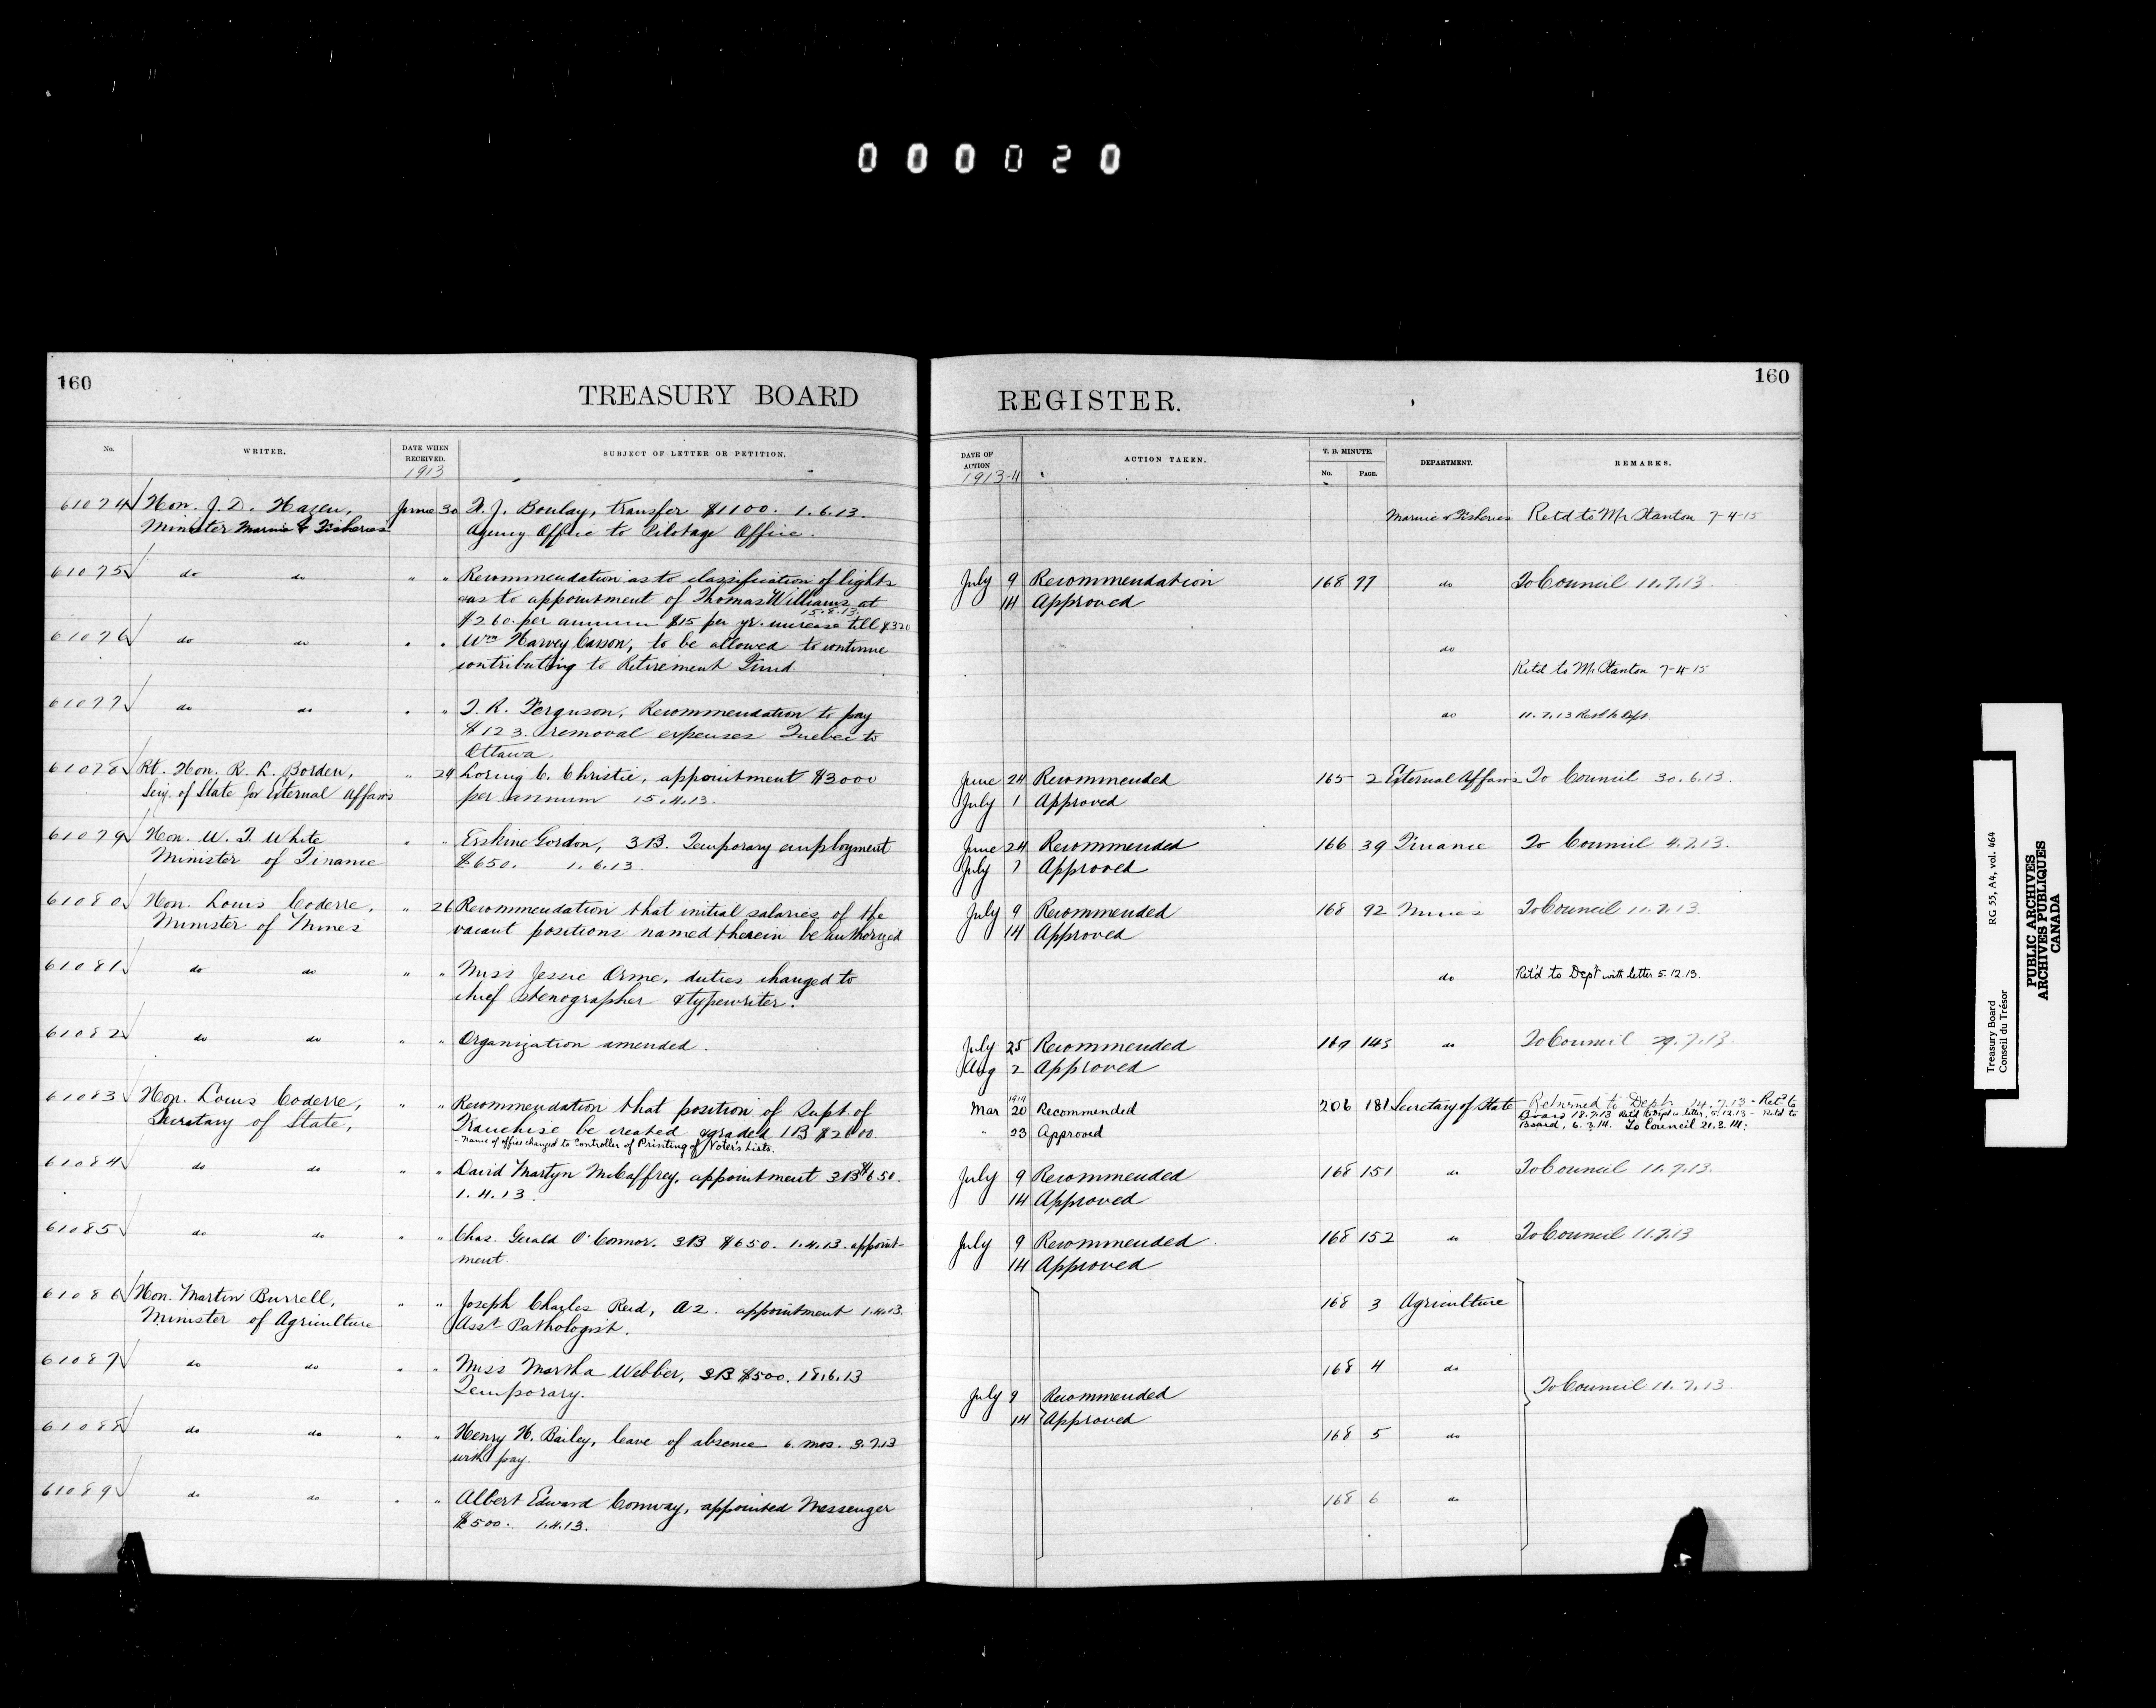 000020
160
TREASURY BOARD
REGISTER.
160
No.
WRITER.
DATE WHEN RECEIVED.
1913
SUBJECT OF LETTER OR PETITION.
DATE OF ACTION
1913-4
ACTION TAKEN.
T. B. MINUTE.
No.
PAGE.
DEPARTMENT.
REMARKS.
61074 Hon. J. D. Hazen, June 30 J. Boulay, transfer $1100. 1.6.13. Marine & Fisheries Retd to Mr Stanton 7-4-15
Minister Marine & Fisheries Agency Office to Pilotage Office.
61075 do do " " Recommendation as to classification of lights July 9 Recommendation 168 77 do To Council 11.7.13.
as to appointment of Thomas Williams at 14 Approved
15.8.13.
$260. per annum $15 per yr. increase till $320
61076 do do " " Wm Harvey Casson, to be allowed to continue do
contributing to Retirement Fund Retd to Mr Stanton 7-4-15
61077 do do " " T. R. Ferguson, Recommendation to pay do 11.7.13 Retd to Dept.
$123. removal expenses Quebec to
Ottawa.
61078 Rt. Hon. R. L. Borden, " 24 Loring C. Christie, appointment $3000 June 24 Recommended 165 2 External Affairs To Council 30.6.13.
Secy. of State for External Affairs per annum 15.4.13. July 1 Approved
61079 Hon. W. T. White " " Erskine Gordon, 3B. Temporary employment June 24 Recommended 166 39 Finance To Council 4.7.13.
Minister of Finance $650. 1.6.13. July 7 Approved
61080 Hon. Louis Coderre, " 26 Recommendation that initial salaries of the July 9 Recommended 168 92 Mines To Council 11.7.13.
Minister of Mines vacant positions named therein be authorized 14 Approved
61081 do do " " Miss Jessie Orme, duties changed to do Ret'd to Dept with letter 5.12.13.
chief stenographer & typewriter.
61082 do do " " Organization amended. July 25 Recommended 169 143 do To Council 29.7.13.
Aug 2 Approved
61083 Hon. Louis Coderre, " " Recommendation that position of Supt. of 1914 Mar 20 Recommended 206 181 Secretary of State Returned to Dept. 14.7.13 - Ret'd to
Secretary of State, Franchise be created & graded 1B $2000 " 23 Approved Board 18.7.13 Retd to Dept w. letter. 5.12.13 - Retd to
- Name of office changed to Controller of Printing of Voter's Lists. Board, 6.3.14. To Council 21.3.14.
61084 do do " " David Martyn McCaffrey, appointment 3B $650. July 9 Recommended 168 151 do To Council 11.7.13.
1.4.13. 14 Approved
61085 do do " " Chas. Gerald O'Connor. 3B $650. 1.4.13. appoint- July 9 Recommended. 168 152 do To Council 11.7.13
ment. 14 Approved
61086 Hon. Martin Burrell, " " Joseph Charles Reid, A2. appointment 1.4.13. 168 3 Agriculture
Minister of Agriculture Asst Pathologist.
61087 do do " " Miss Martha Webber, 3B $500. 18.6.13 168 4 do
Temporary. July 9 Recommended To Council 11.7.13.
14 Approved
61088 do do " " Henry H. Bailey, leave of absence 6. mos. 3.7.13 168 5 do
with pay.
61089 do do " " Albert Edward Conway, appointed Messenger 168 6 do
$500. 1.4.13.
Treasury Board
Conseil du Trésor
RG 55, A4, vol. 464
PUBLIC ARCHIVES
ARCHIVES PUBLIQUES
CANADA